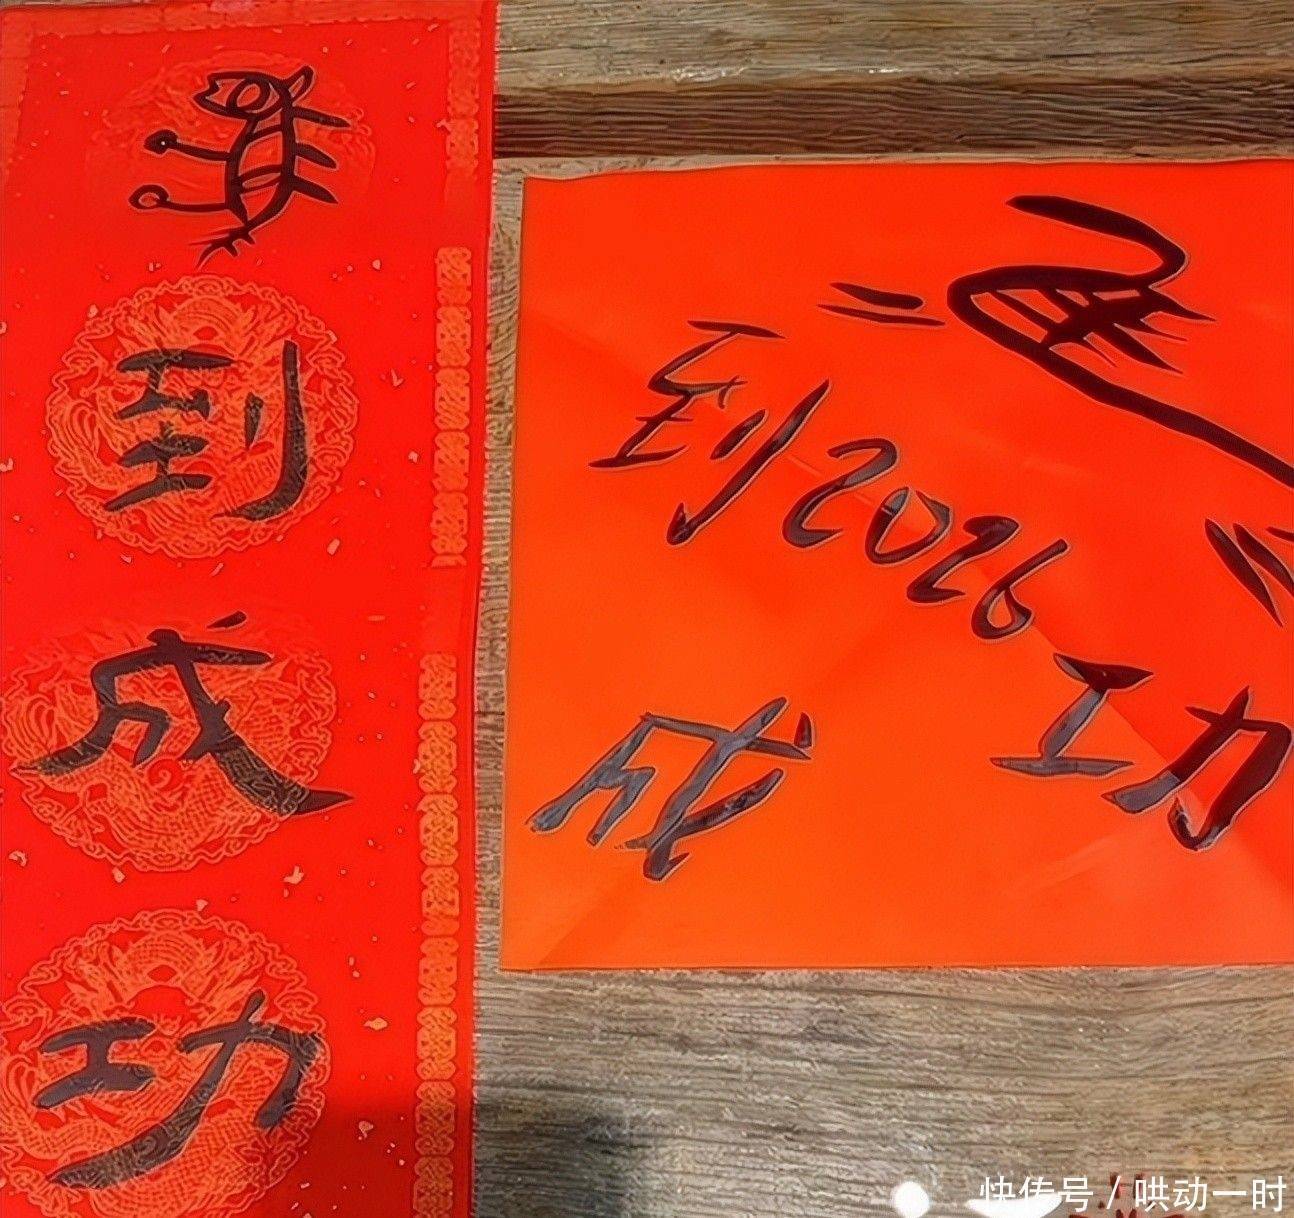 到
成
功
到2026
成
功
快传号 / 哄动一时